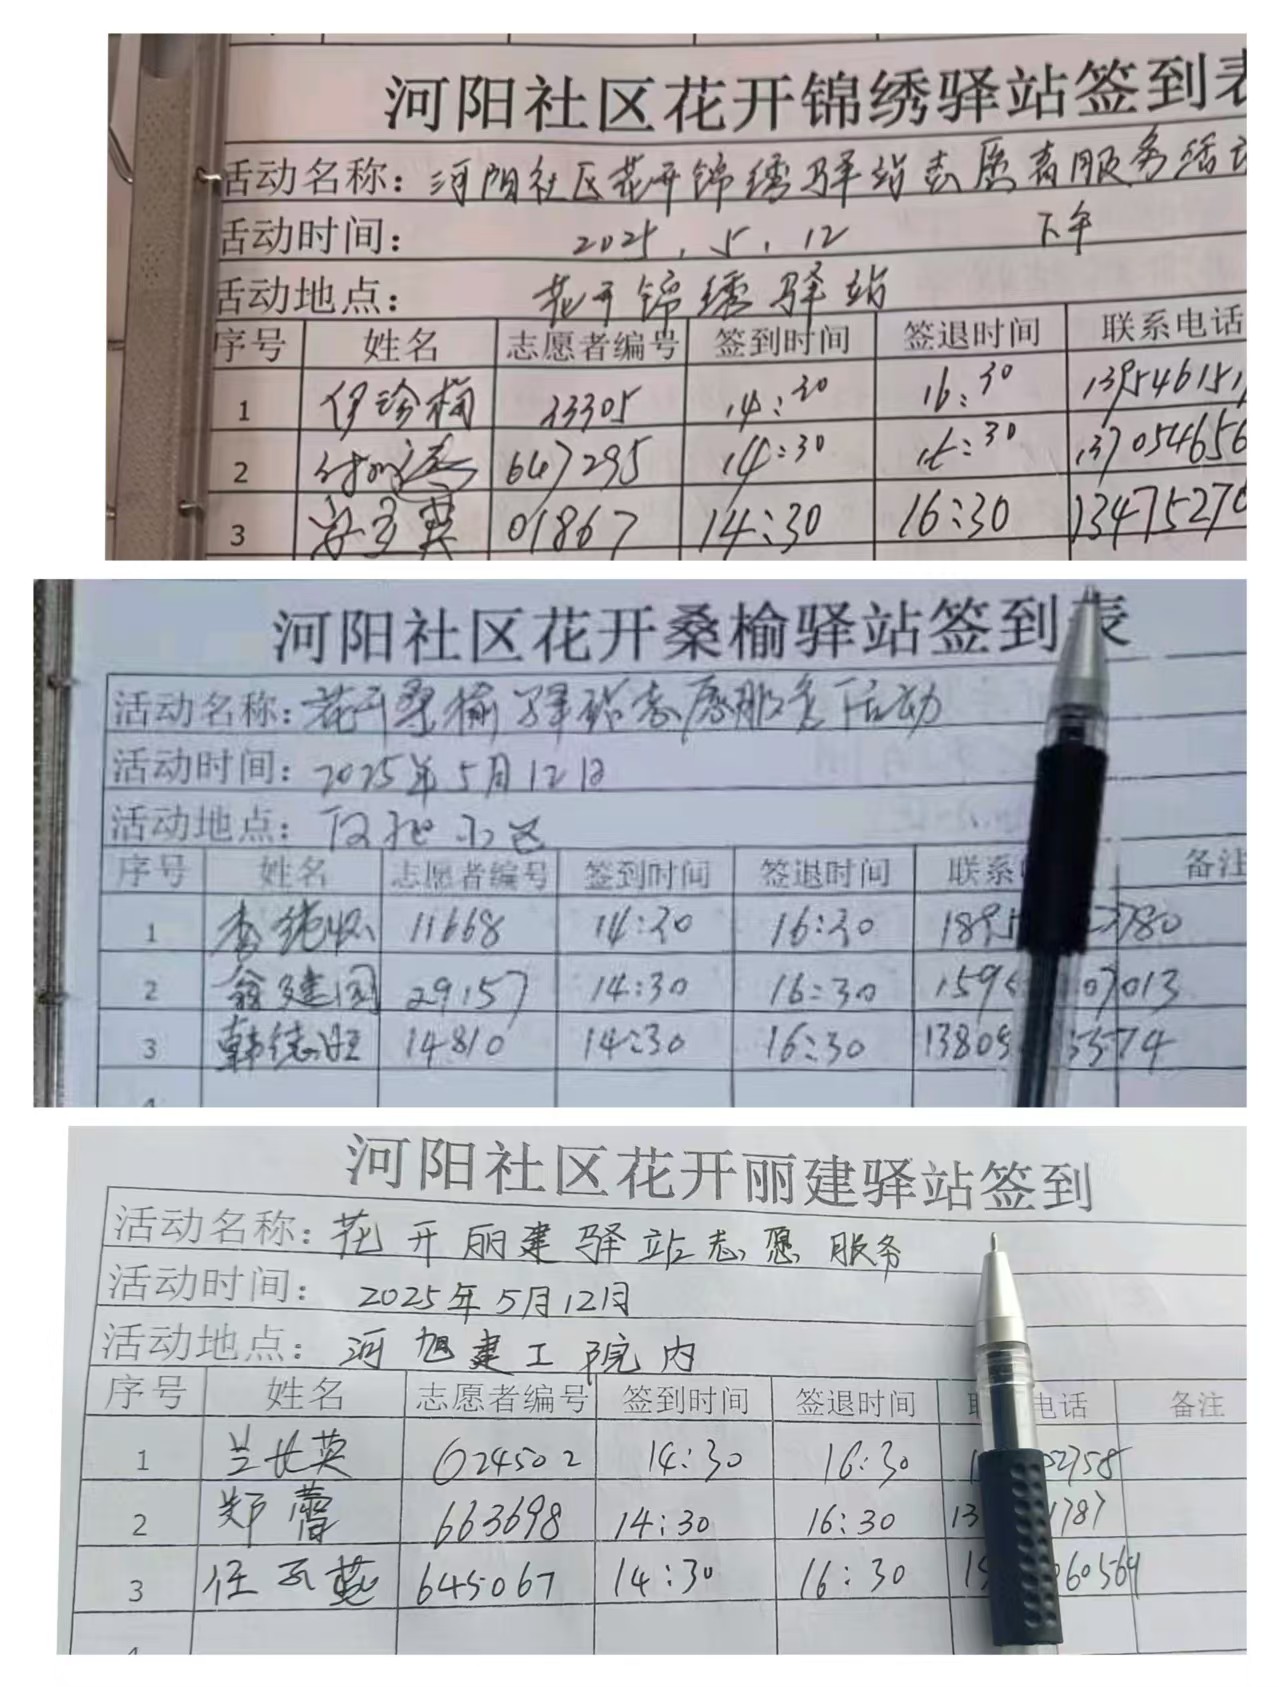 河阳社区花开锦绣驿站签到表
活动名称：河阳社区花开锦绣驿站志愿者服务活动
活动时间： 2025.5.12 下午
活动地点： 花开锦绣驿站
序号 姓名 志愿者编号 签到时间 签退时间 联系电话
1 伊珍梅 33305 14:30 16:30 139546151
2 647295 14:30 16:30 137054656
3 01867 14:30 16:30 13475270
河阳社区花开桑榆驿站签到表
活动名称：花开桑榆驿站志愿服务活动
活动时间：2025年5月12日
活动地点： 小区
序号 姓名 志愿者编号 签到时间 签退时间 联系 备注
1 李纯怀 11668 14:30 16:30 1895 2780
2 翁建国 29157 14:30 16:30 159 07013
3 韩德旺 14810 14:30 16:30 13805 3574
河阳社区花开丽建驿站签到
活动名称：花开丽建驿站志愿服务
活动时间： 2025年5月12日
活动地点： 河旭建工院内
序号 姓名 志愿者编号 签到时间 签退时间 电话 备注
1 兰长英 024502 14:30 16:30 1 02758
2 郑蕾 663698 14:30 16:30 13 1787
3 任 645067 14:30 16:30 15 060564